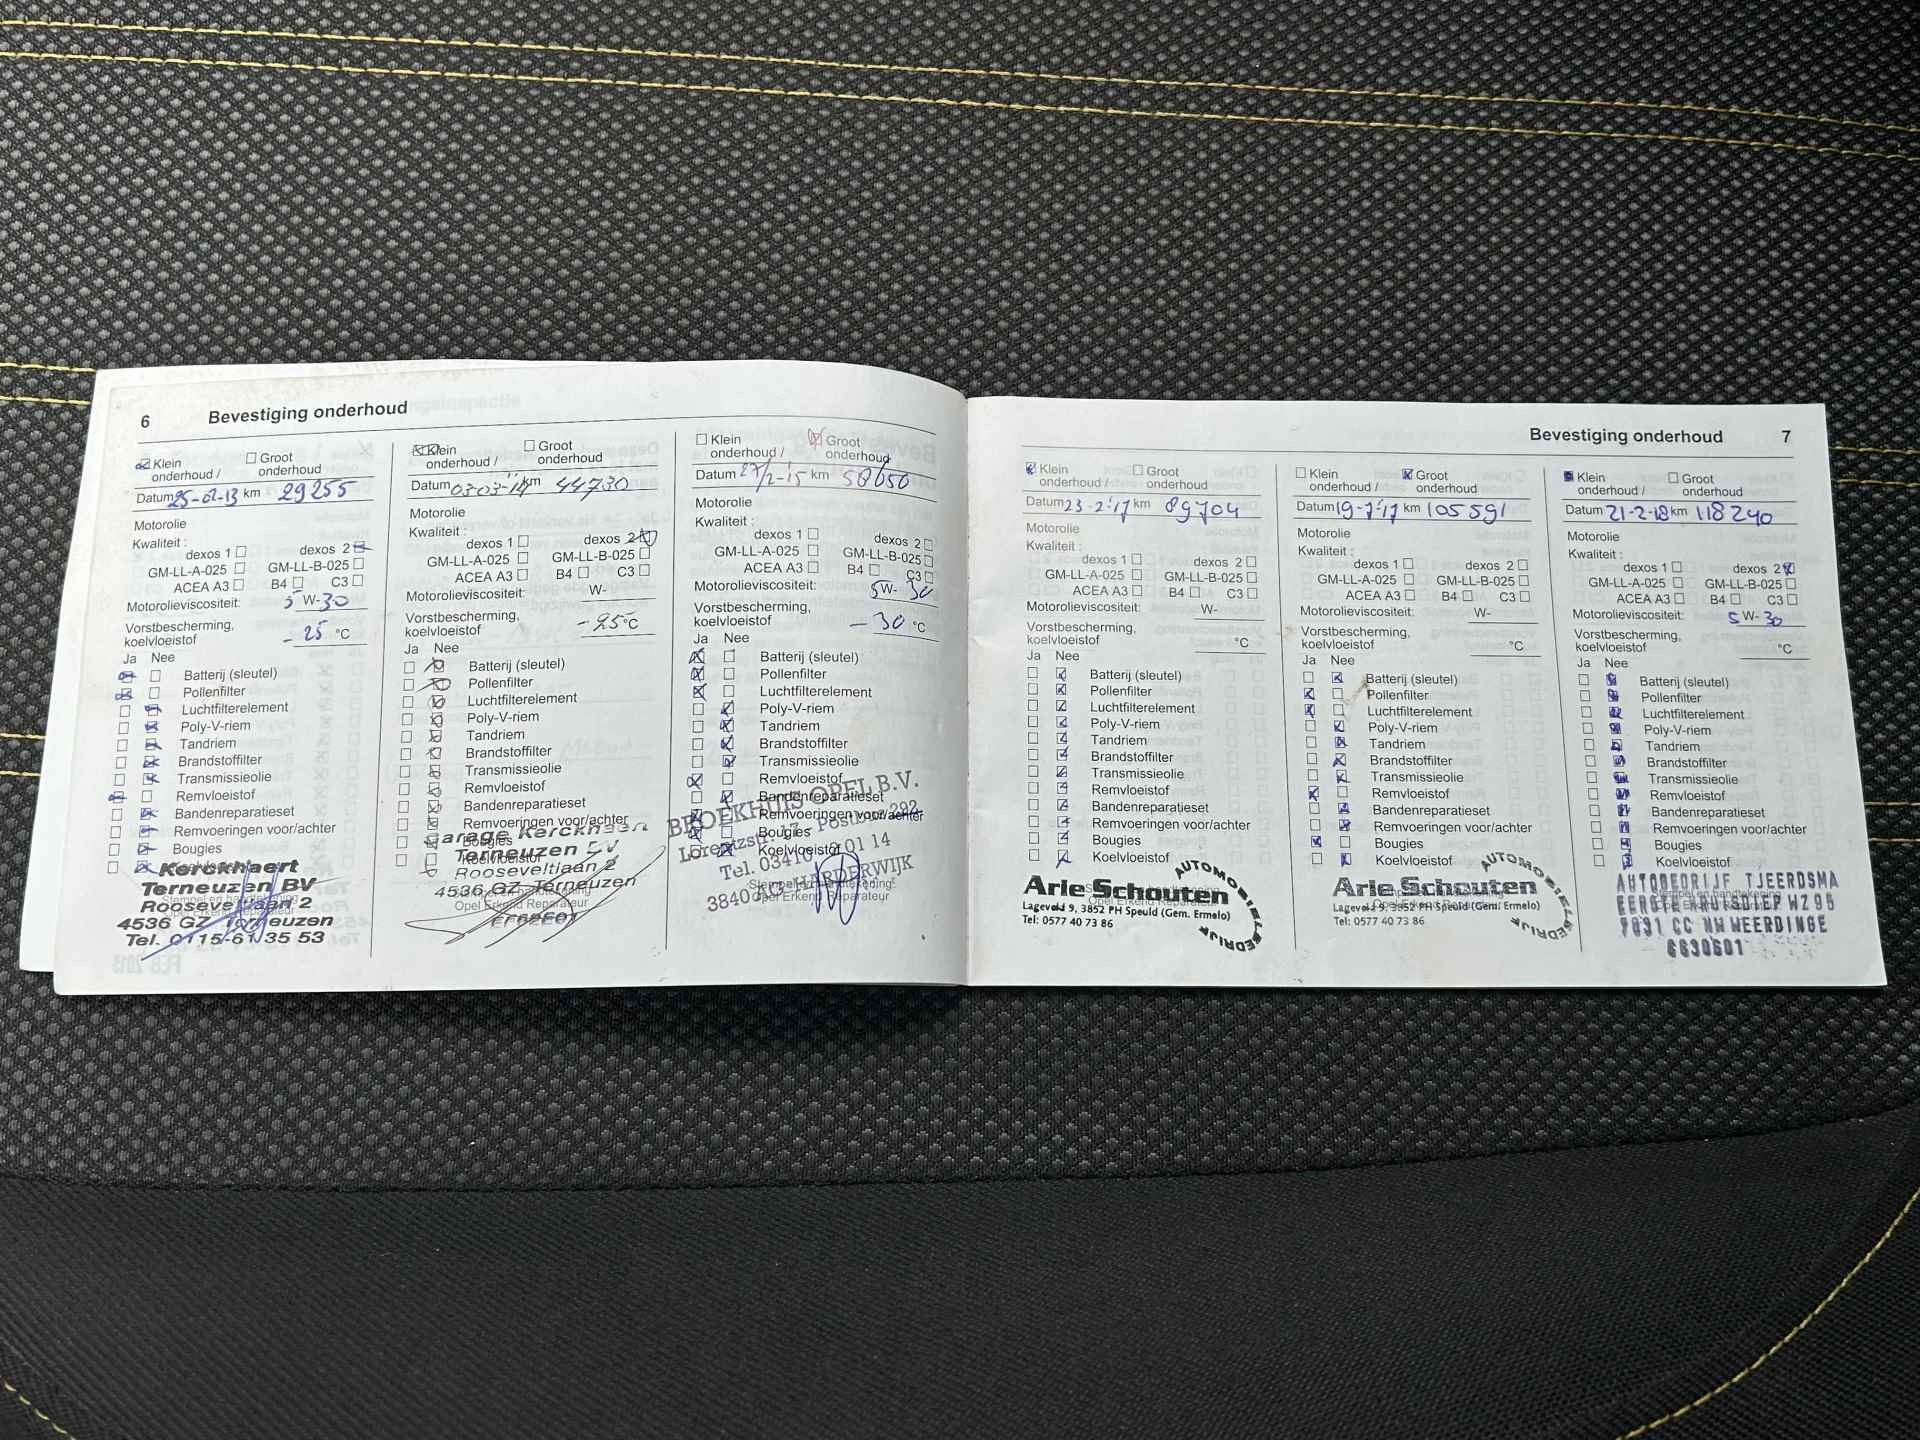 6 Bevestiging onderhoud
Klein onderhoud / Groot onderhoud
Datum 25-02-13 km 29255
Motorolie
Kwaliteit :
dexos 1 dexos 2
GM-LL-A-025 GM-LL-B-025
ACEA A3 B4 C3
Motorolieviscositeit: 5 W- 30
Vorstbescherming,
koelvloeistof - 25 °C
Ja Nee
Batterij (sleutel)
Pollenfilter
Luchtfilterelement
Poly-V-riem
Tandriem
Brandstoffilter
Transmissieolie
Remvloeistof
Bandenreparatieset
Remvoeringen voor/achter
Bougies
Koelvloeistof
Kerckhaert
Terneuzen BV
Rooseveltlaan 2
4536 GZ Terneuzen
Tel. 0115-61 35 53
Klein onderhoud / Groot onderhoud
Datum 03-03-14 km 44730
Motorolie
Kwaliteit :
dexos 1 dexos 2
GM-LL-A-025 GM-LL-B-025
ACEA A3 B4 C3
Motorolieviscositeit: W-
Vorstbescherming,
koelvloeistof -25 °C
Ja Nee
Batterij (sleutel)
Pollenfilter
Luchtfilterelement
Poly-V-riem
Tandriem
Brandstoffilter
Transmissieolie
Remvloeistof
Bandenreparatieset
Remvoeringen voor/achter
Bougies
Koelvloeistof
Garage Kerckhaert
Terneuzen BV
Rooseveltlaan 2
4536 GZ Terneuzen
Opel Erkend Reparateur
Klein onderhoud / Groot onderhoud
Datum 27/2-'15 km 58050
Motorolie
Kwaliteit :
dexos 1 dexos 2
GM-LL-A-025 GM-LL-B-025
ACEA A3 B4 C3
Motorolieviscositeit: 5 W- 30
Vorstbescherming,
koelvloeistof - 30 °C
Ja Nee
Batterij (sleutel)
Pollenfilter
Luchtfilterelement
Poly-V-riem
Tandriem
Brandstoffilter
Transmissieolie
Remvloeistof
Bandenreparatieset
Remvoeringen voor/achter
Bougies
Koelvloeistof
BROEKHUIS OPEL B.V.
Lorentzstr. 17 - Postbus 292
3840 AG HARDERWIJK
Stempel en handtekening
Opel Erkend Reparateur
Bevestiging onderhoud 7
Klein onderhoud / Groot onderhoud
Datum 23-2-'17 km 89704
Motorolie
Kwaliteit :
dexos 1 dexos 2
GM-LL-A-025 GM-LL-B-025
ACEA A3 B4 C3
Motorolieviscositeit: W-
Vorstbescherming,
koelvloeistof °C
Ja Nee
Batterij (sleutel)
Pollenfilter
Luchtfilterelement
Poly-V-riem
Tandriem
Brandstoffilter
Transmissieolie
Remvloeistof
Bandenreparatieset
Remvoeringen voor/achter
Bougies
Koelvloeistof
Arie Schouten
Lageveld 9, 3852 PH Speuld (Gem. Ermelo)
Tel: 0577 40 73 86
AUTOMOBIELBEDRIJF
Klein onderhoud / Groot onderhoud
Datum 19-7-'17 km 105591
Motorolie
Kwaliteit :
dexos 1 dexos 2
GM-LL-A-025 GM-LL-B-025
ACEA A3 B4 C3
Motorolieviscositeit: W-
Vorstbescherming,
koelvloeistof °C
Ja Nee
Batterij (sleutel)
Pollenfilter
Luchtfilterelement
Poly-V-riem
Tandriem
Brandstoffilter
Transmissieolie
Remvloeistof
Bandenreparatieset
Remvoeringen voor/achter
Bougies
Koelvloeistof
Arie Schouten
Lageveld 9, 3852 PH Speuld (Gem. Ermelo)
Tel: 0577 40 73 86
AUTOMOBIELBEDRIJF
Klein onderhoud / Groot onderhoud
Datum 21-2-18 km 118240
Motorolie
Kwaliteit :
dexos 1 dexos 2
GM-LL-A-025 GM-LL-B-025
ACEA A3 B4 C3
Motorolieviscositeit: 5 W- 30
Vorstbescherming,
koelvloeistof °C
Ja Nee
Batterij (sleutel)
Pollenfilter
Luchtfilterelement
Poly-V-riem
Tandriem
Brandstoffilter
Transmissieolie
Remvloeistof
Bandenreparatieset
Remvoeringen voor/achter
Bougies
Koelvloeistof
AUTOBEDRIJF TJEERDSMA
EERSTE KRUISDIEP WZ 95
7831 CC NW WEERDINGE